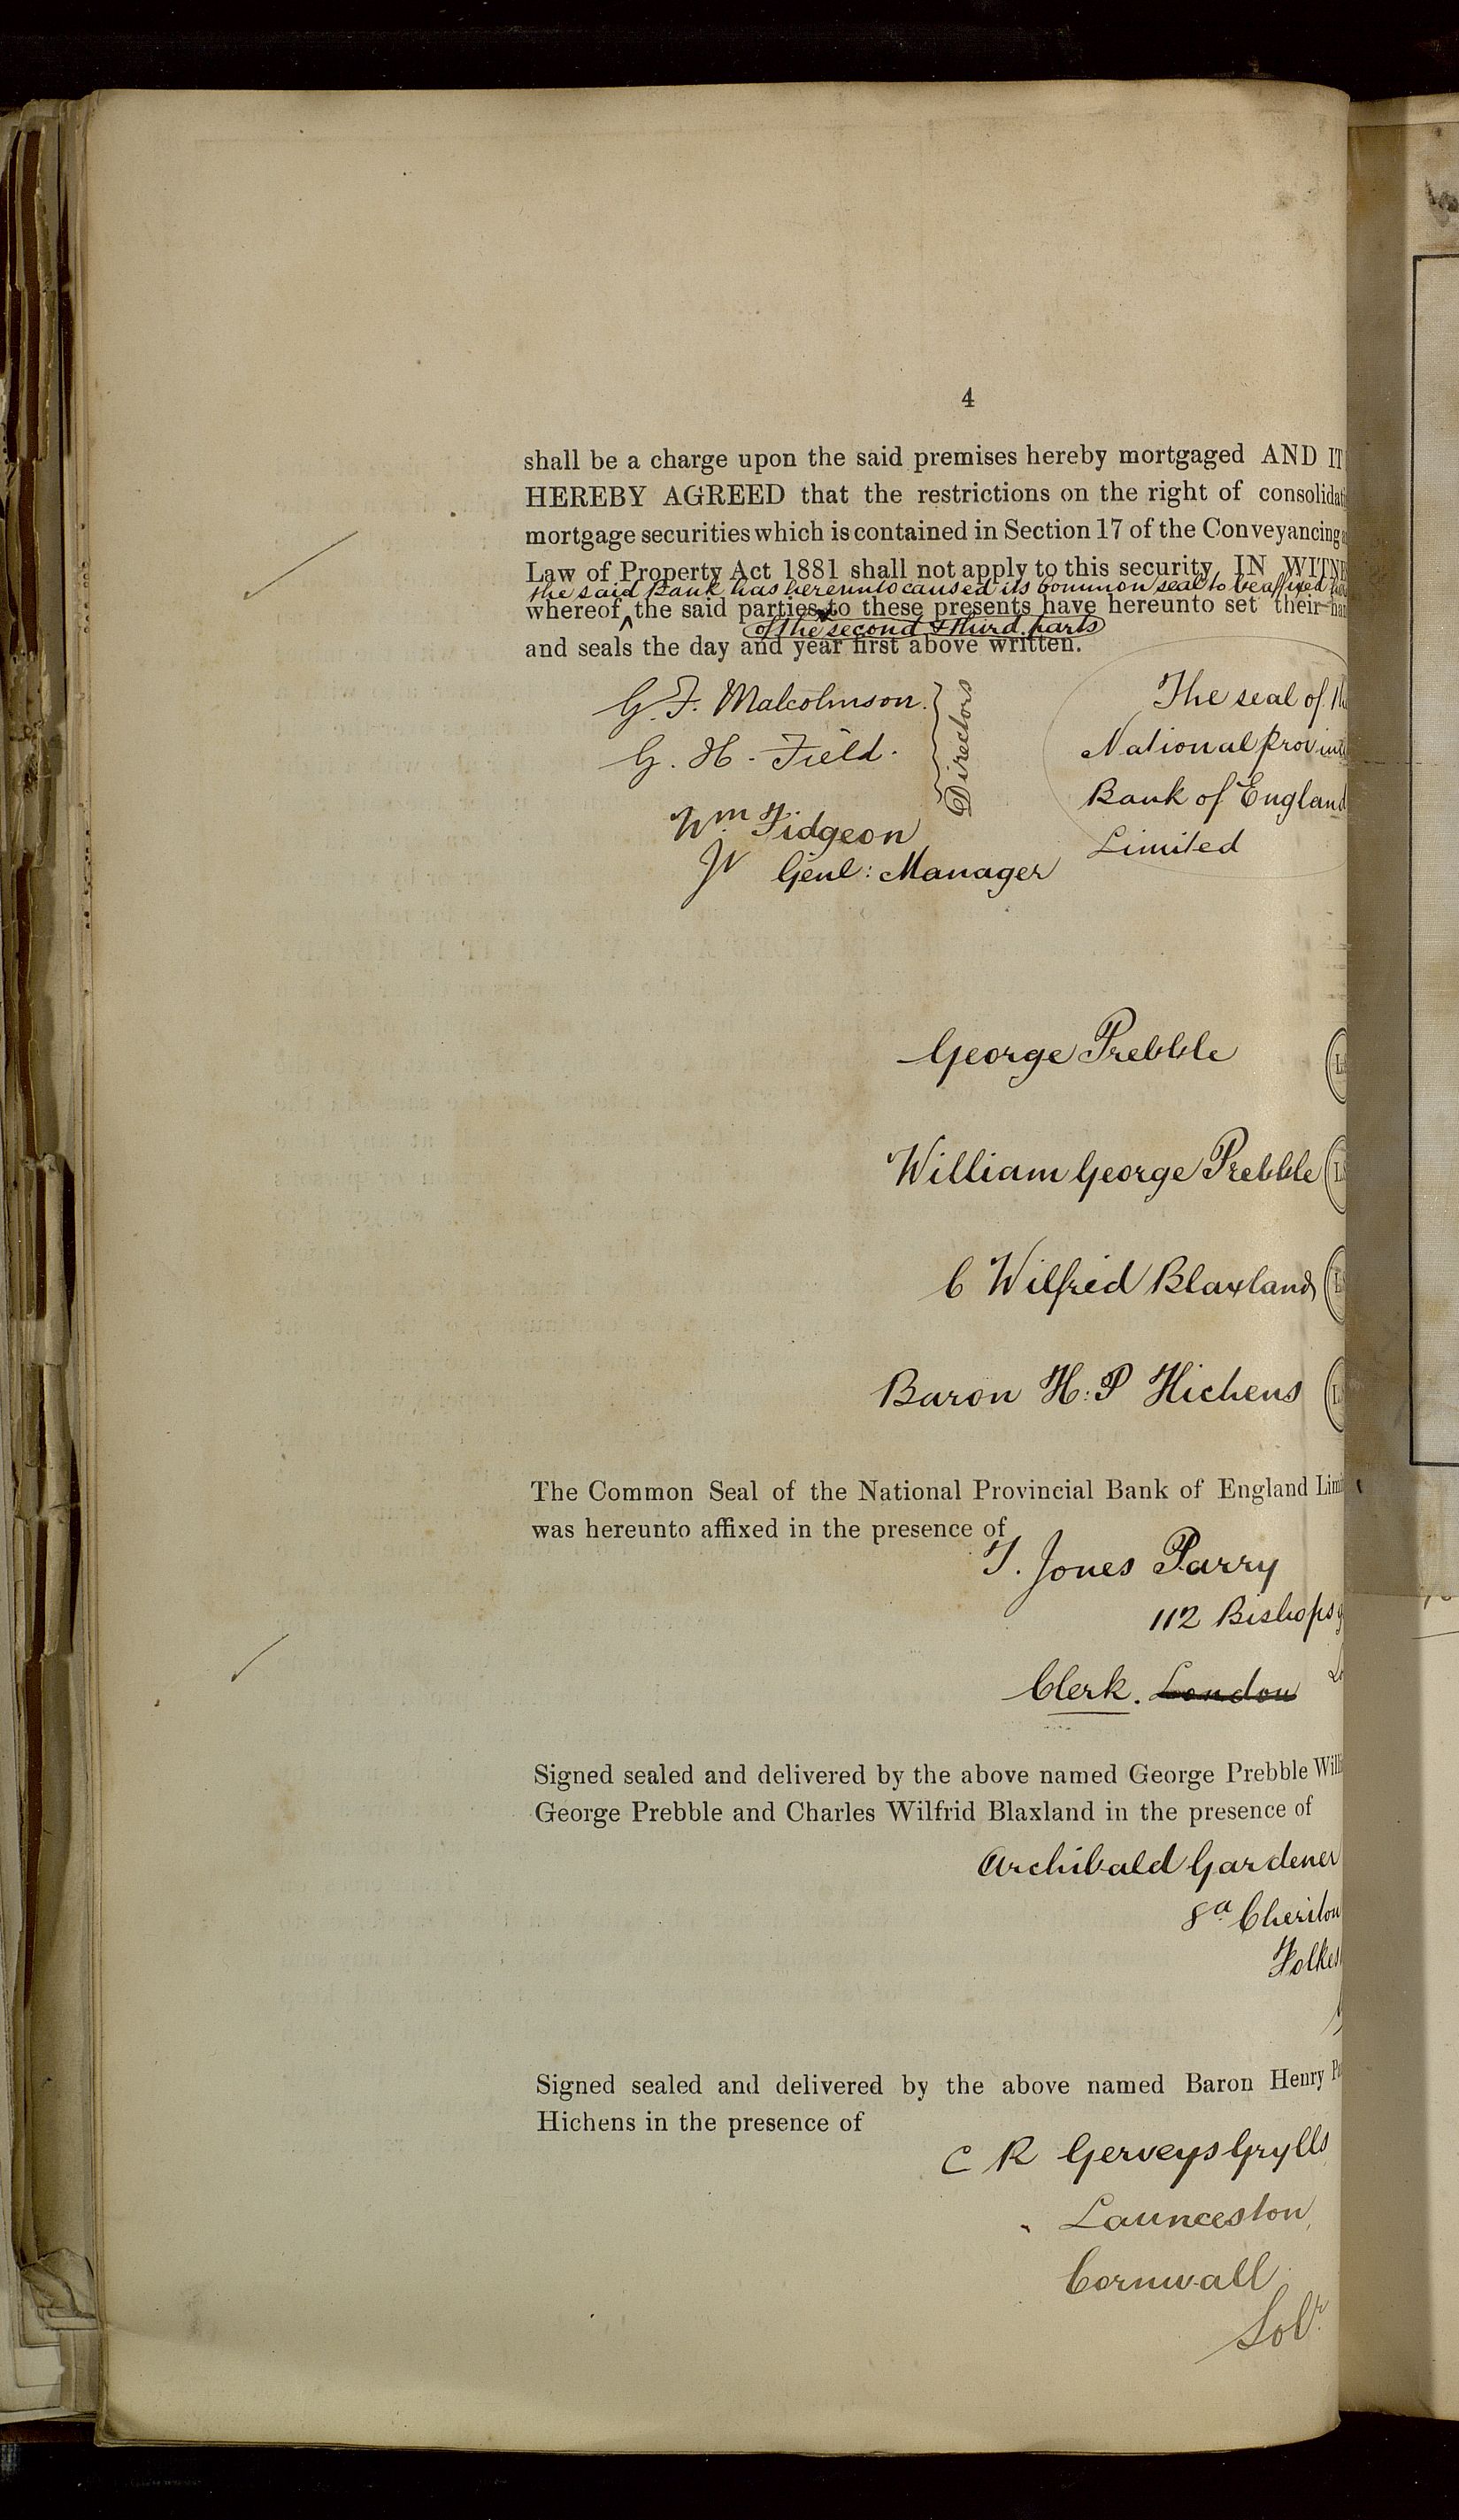 4
shall be a charge upon the said premises hereby mortgaged AND IT
HEREBY AGREED that the restrictions on the right of consolidati
mortgage securities which is contained in Section 17 of the Conveyancing
Law of Property Act 1881 shall not apply to this security IN WITNE
the said Bank has hereunto caused its Common seal to be affixed
whereof ^ the said parties to these presents have hereunto set their han
of the second & third parts
and seals the day and year first above written.
G. F. Malcolmson.
G. H. Field.
Directors
Wm Fidgeon
Jt Genl: Manager
The seal of the
National Provinci
Bank of England
Limited
George Prebble
William George Prebble
C Wilfrid Blaxland
Baron H: P Hichens
The Common Seal of the National Provincial Bank of England Limi
was hereunto affixed in the presence of
T. Jones Parry
112 Bishopsg
Clerk. London
Signed sealed and delivered by the above named George Prebble Willi
George Prebble and Charles Wilfrid Blaxland in the presence of
Archibald Gardener
8a Cheriton
Folkes
Signed sealed and delivered by the above named Baron Henry P
Hichens in the presence of
C R Gerveys Grylls
Launceston
Cornwall
Solr.